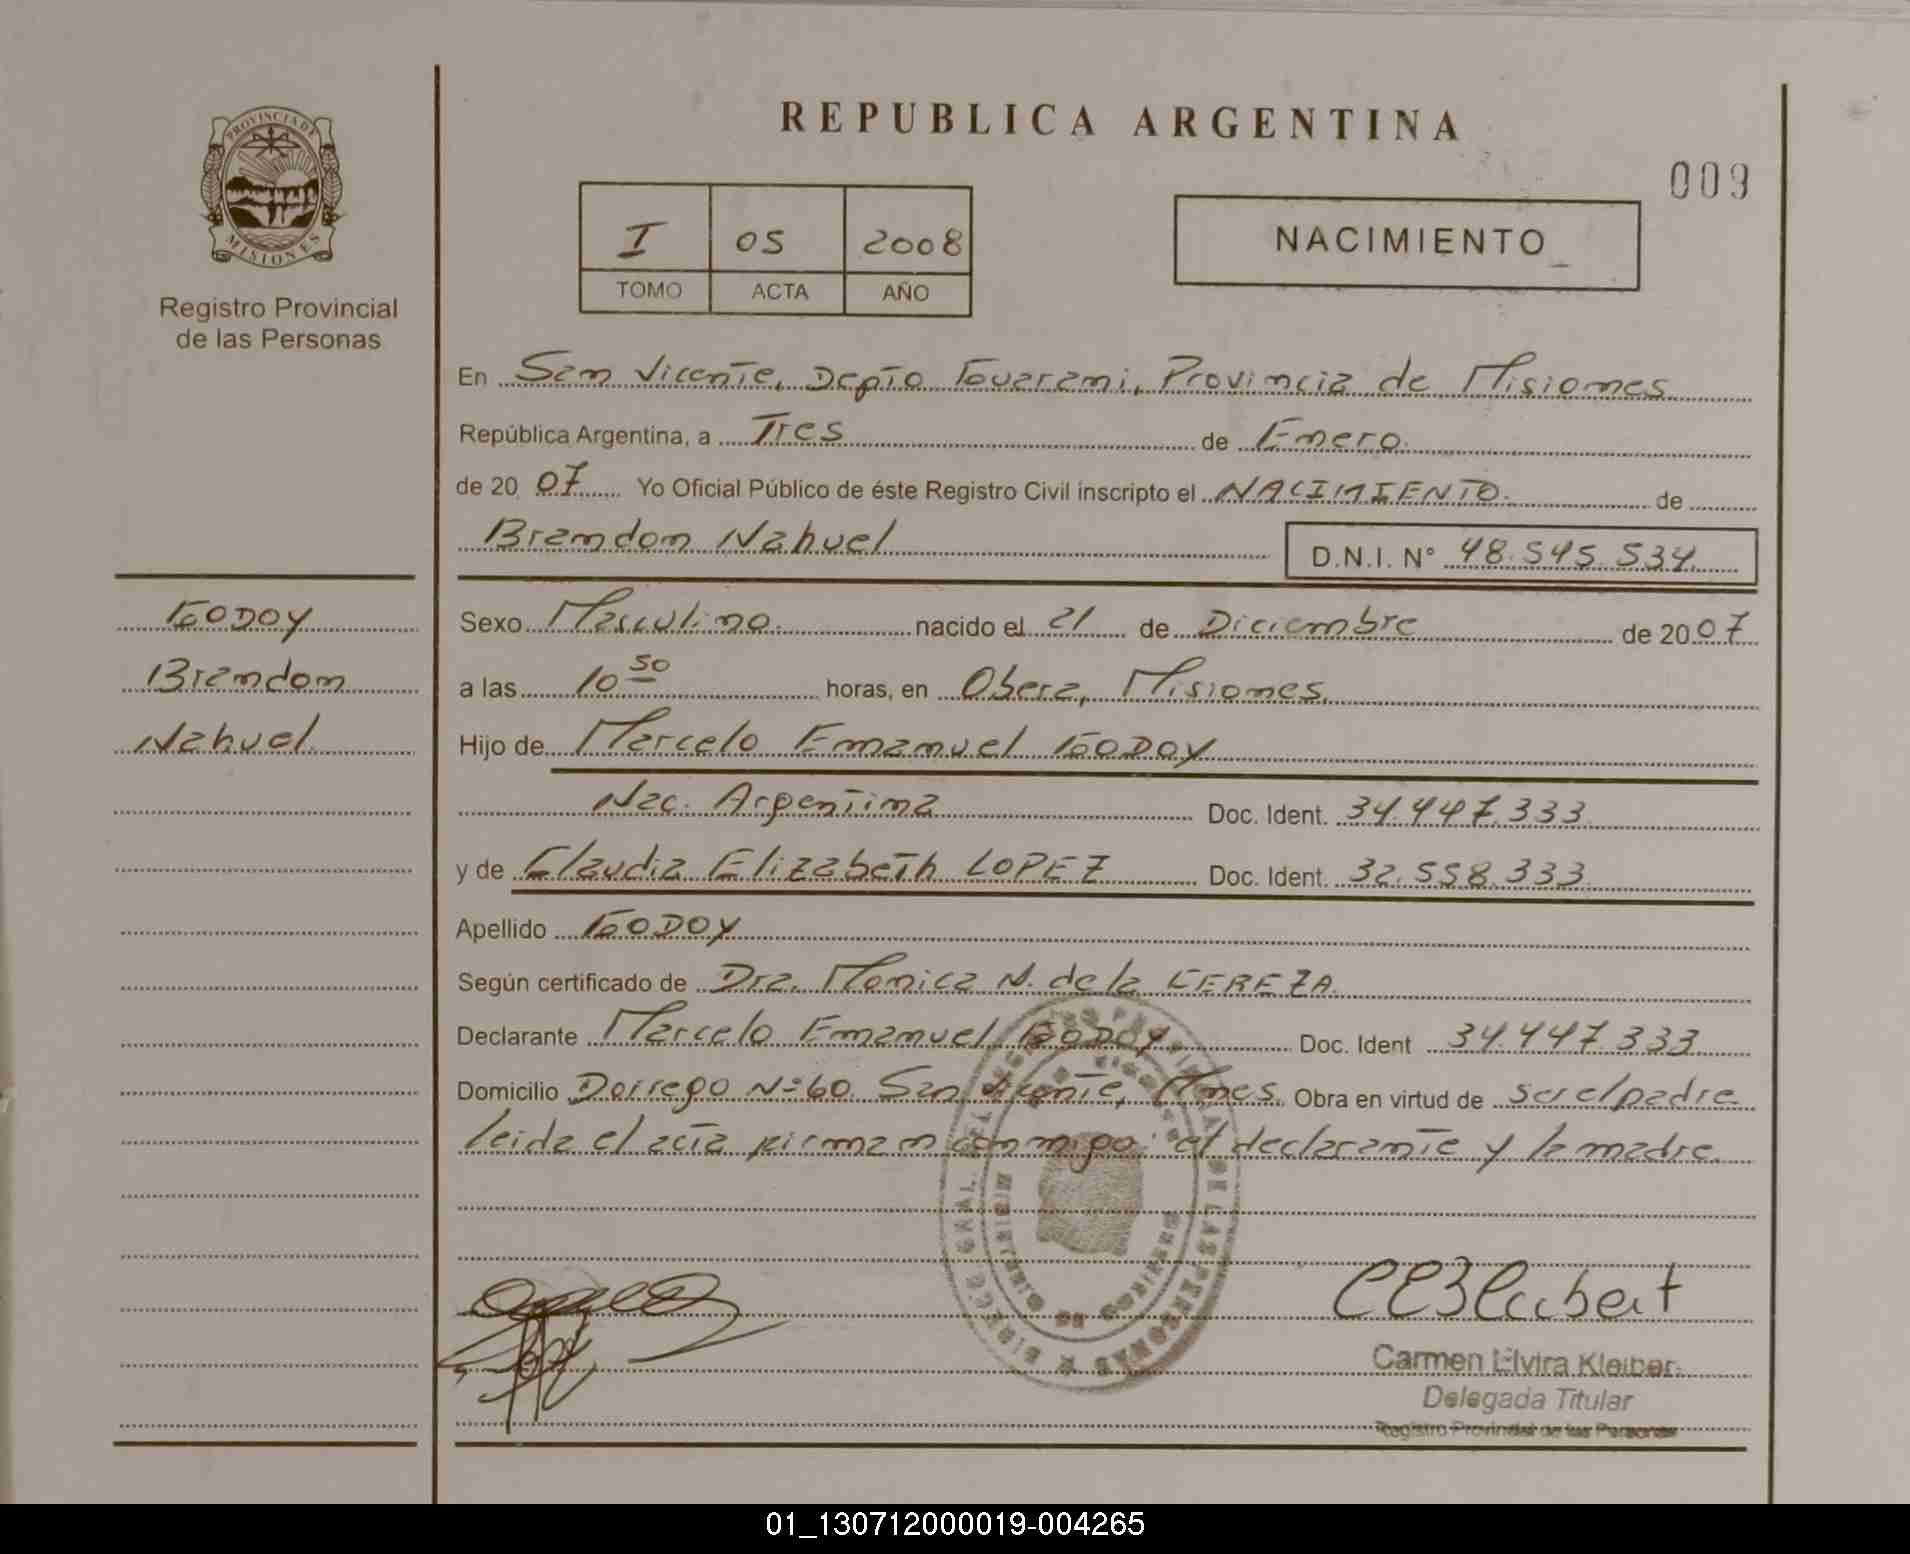 REPUBLICA ARGENTINA
009
PROVINCIA DE
MISIONES
Registro Provincial
de las Personas
I 05 2008
TOMO ACTA AÑO
NACIMIENTO
En San Vicente, Depto Guarani, Provincia de Misiones
República Argentina, a Tres de Enero
de 20 07 Yo Oficial Público de éste Registro Civil inscripto el NACIMIENTO de
Brandon Nahuel D.N.I. N° 48.545.534
GODOY
Brandon
Nahuel
Sexo Masculino nacido el 21 de Diciembre de 2007
a las 10 50 horas, en Obera, Misiones,
Hijo de Marcelo Emanuel GODOY
Nac. Argentina Doc. Ident. 34.447.333
y de Claudia Elizabeth LOPEZ Doc. Ident. 32.558.333
Apellido GODOY
Según certificado de Dra. Monica N. de la CEREZA
Declarante Marcelo Emanuel GODOY Doc. Ident 34.447.333
Domicilio Dorrego N=60 San Vicente, Mnes. Obra en virtud de ser el padre
leida el acta firman conmigo: el declarante y la madre
Carmen Elvira Kleiber
Delegada Titular
Registro Provincial de las Personas
01_130712000019-004265